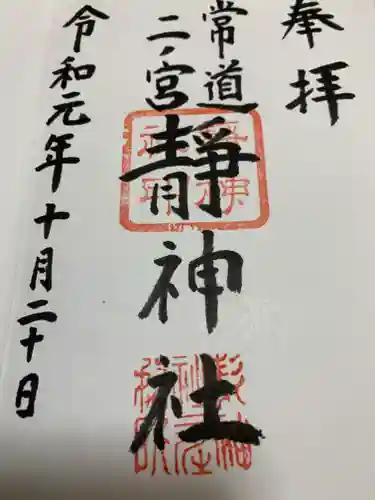 奉拝
常道
二ノ宮
靜神社
令和元年十月二十日